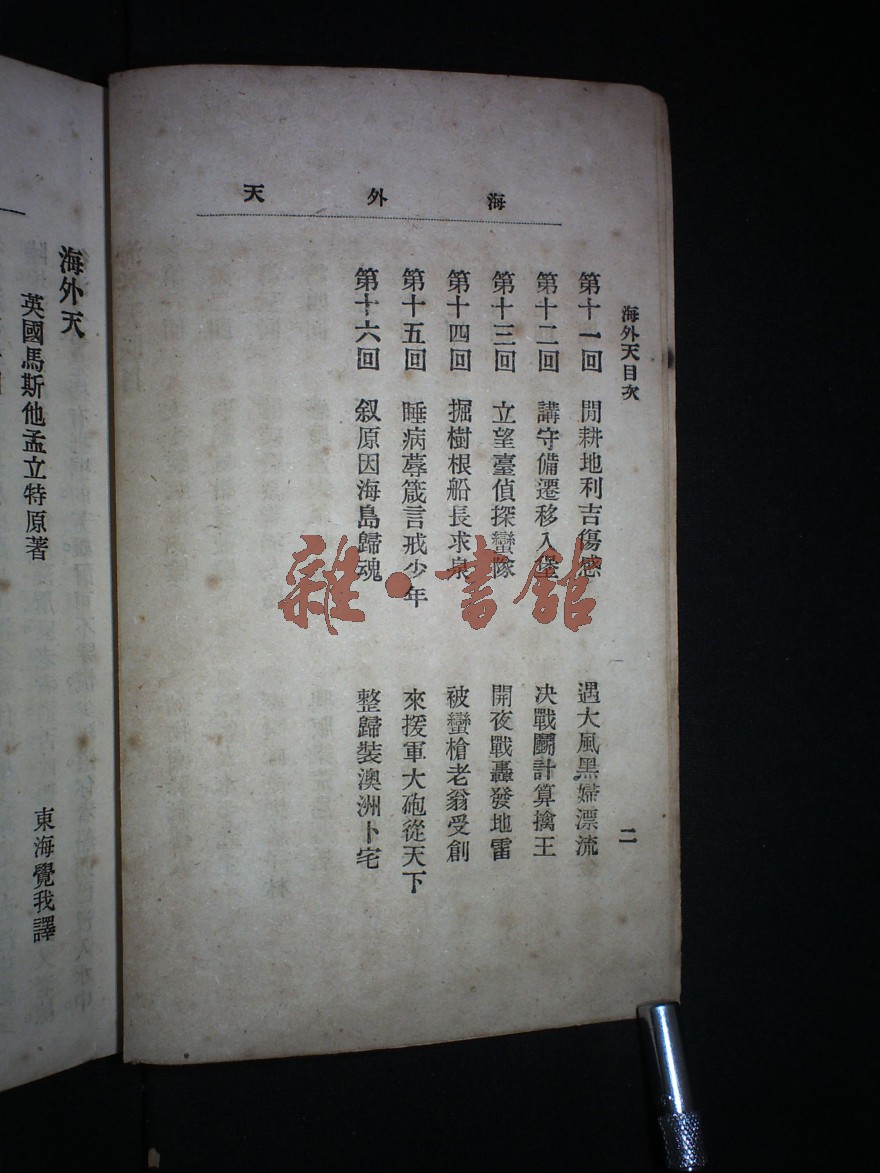 海外天
海外天目次
二
第十一回 開耕地利吉傷感 遇大風黑婦漂流
第十二回 講守備遷移入堡 決戰鬭計算擒王
第十三回 立望臺偵探蠻隊 開夜戰轟發地雷
第十四回 掘樹根船長求泉 被蠻槍老翁受創
第十五回 睡病蓐箴言戒少年 來援軍大砲從天下
第十六回 叙原因海島歸魂 整歸裝澳洲卜宅
雜·書館
海外天
英國馬斯他孟立特原著
東海覺我譯